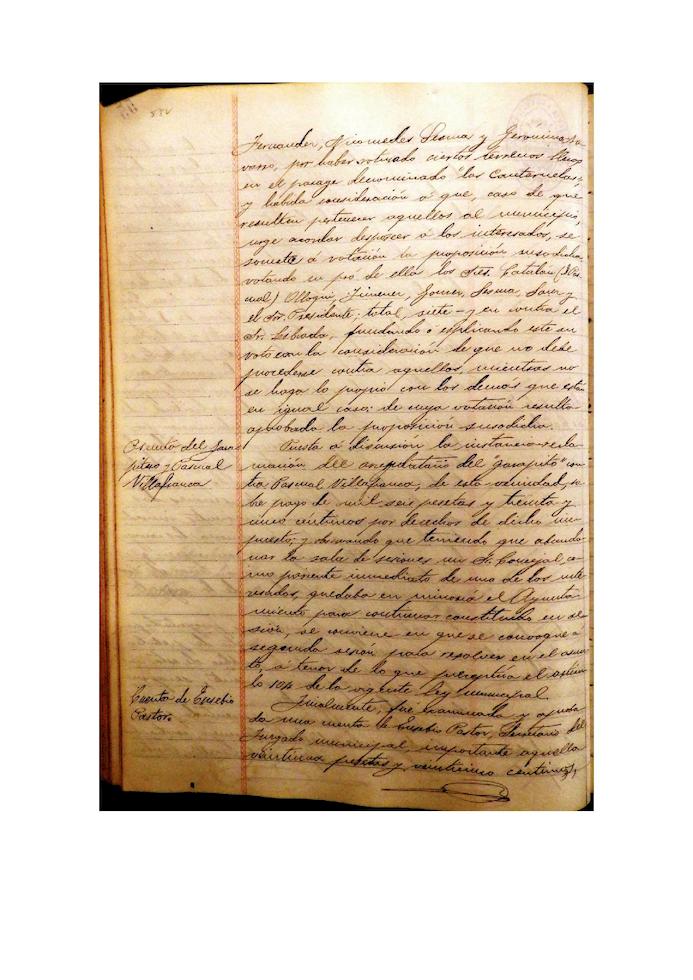 Fernandez, Nicomedes Sesma y Gerónimo Na-
varro, por haber roturado ciertos terrenos
en el parage denominado "las Cantaruelas"
y habida consideración á que, caso de que
resulten pertenecer aquellos al municipio,
urge acordar desposeer á los interesados, se
somete á votación la proposición susodicha
votando en pró de ella los Sres. Catalán (D. Pas-
cual) Olloqui, Jimenez, Gomez, Sesma, Sanz y
el Sr. Presidente; total, siete - y en contra el
Sr. Lebrada, fundando ó esplicando este su
voto con la consideración de que no debe
procederse contra aquellos, mientras no
se haga lo propio con los demás que están
en igual caso; de cuya votación resulta
aprobada la proposición susodicha.
Asunto del gara-
pitero y Pascual
Villafranca
Puesta á discusión la instancia-recla-
mación del arrendatario del "garapito" con-
tra Pascual Villafranca, de esta vecindad, so-
bre pago de mil seis pesetas y treinta y
cinco céntimos por derechos de dicho im-
puesto; y observando que teniendo que abando-
nar la sala de sesiones un Sr. Concejal, co-
mo pariente inmediato de uno de los inte-
resados, quedaba en minoria el Ayunta-
miento para continuar constituido en se-
sión, se conviene en que se convoque a
segunda sesion para resolver en el asun-
to, á tenor de lo que preceptúa el artícu-
lo 104 de la vigente Ley municipal.
Cuenta de Eusebio
Pastor
Finalmente, fue examinada y aproba-
da una cuenta de Eusebio Pastor, Secretario del
Juzgado municipal, importante aquella
pesetas y veinticinco centimos,